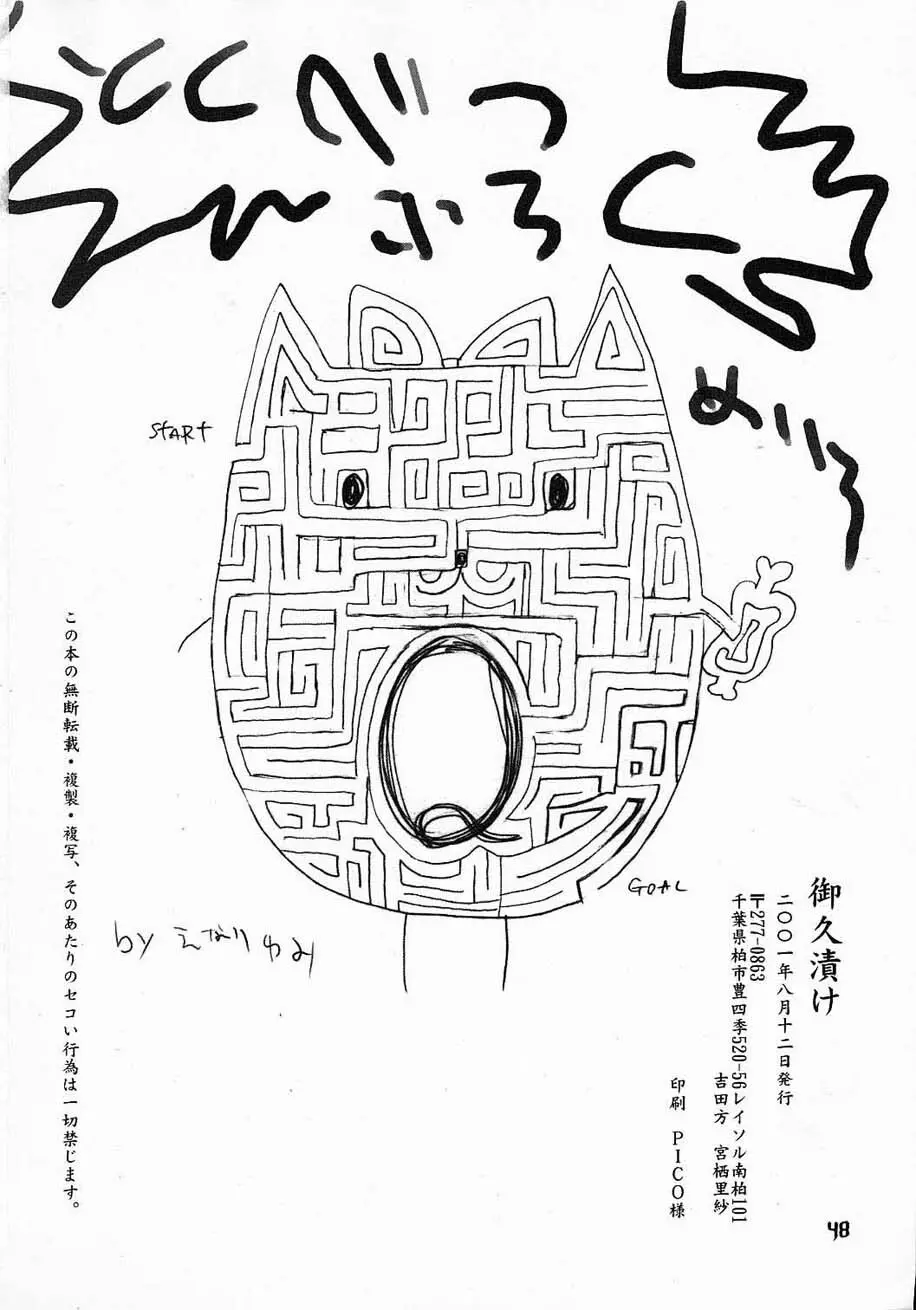 とくべつ
ふろく
めいろ
START
GOAL
by えなりゆみ
御久漬け
二〇〇一年八月十二日発行
〒277-0863
千葉県柏市豊四季520-56レイソル南柏101
吉田方 宮栖里紗
印刷 PICO様
この本の無断転載・複製・複写、そのあたりのセコい行為は一切禁じます。
48